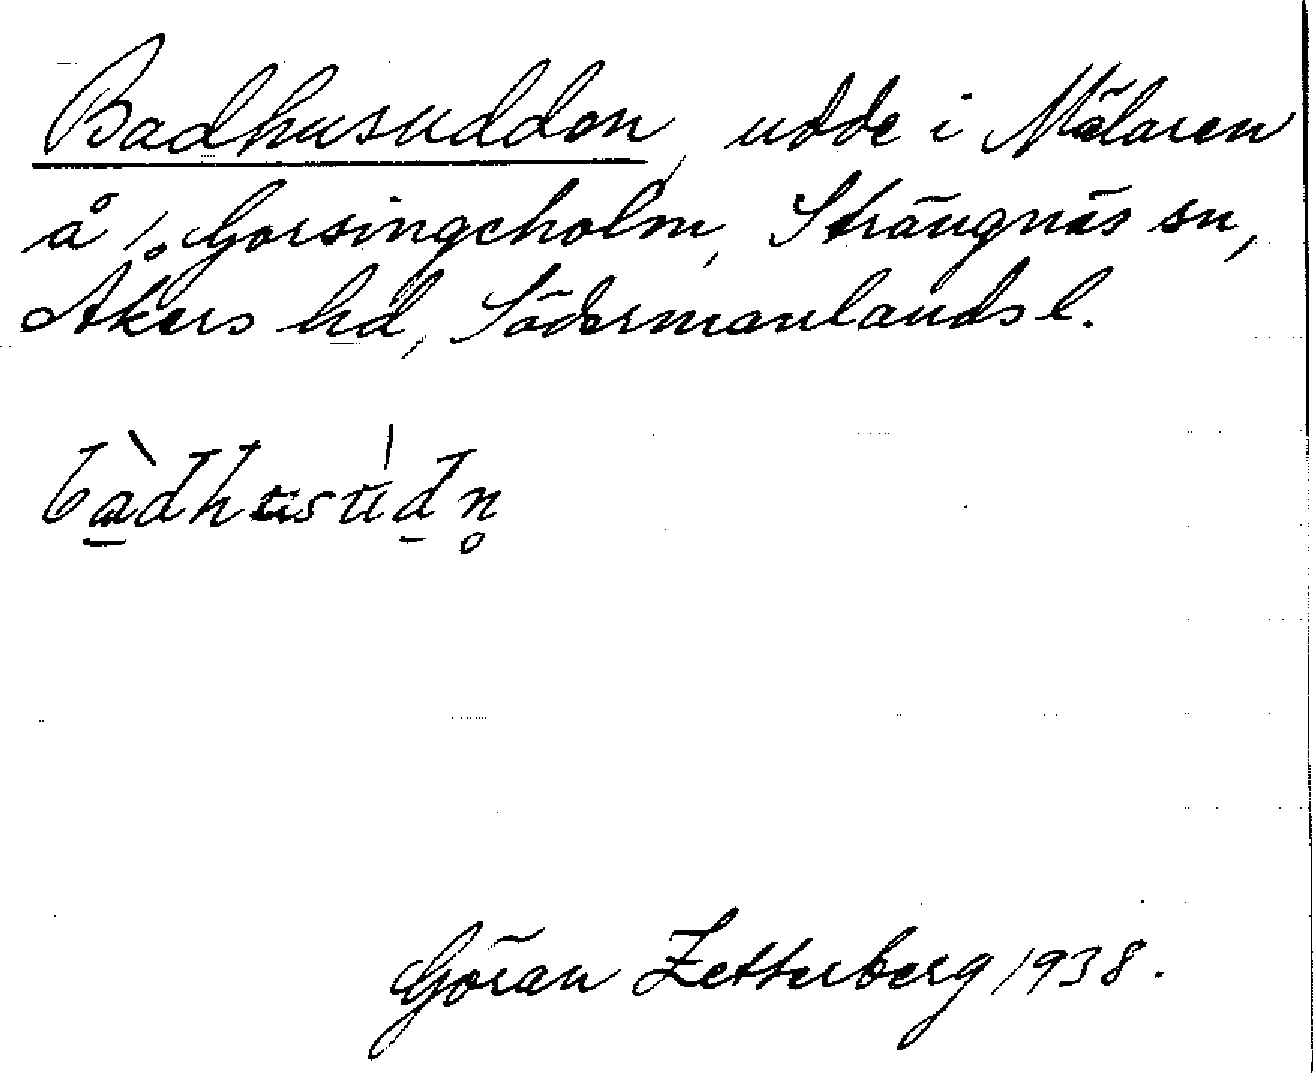 Badhusudden, udde i Mälaren
å 1. Gorsingeholm, Strängnäs sn,
Åkers hd, Södermanlands l.
Göran Zetterberg 1938.